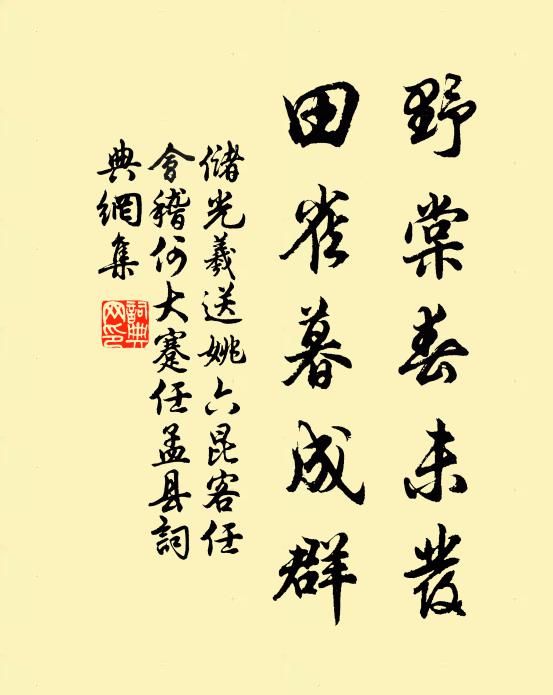 野棠春未發
田雀暮成群
儲光羲送姚六昆客任
會稽何大蹇任孟县詞
典網集
詞典網印